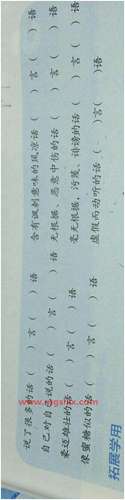 拓展学用
说了很多的话（ ）言（ ）语 含有讽刺意味的风凉话（ ）言（ ）语
自己对自己说的话（ ）言（ ）语 无根据、恶意中伤的话（ ）言（ ）语
豪迈雄壮的话（ ）言（ ）语 毫无根据，污蔑、诽谤的话（ ）言（ ）语
像蜜糖似的话（ ）言（ ）语 虚假而动听的话（ ）言（ ）语